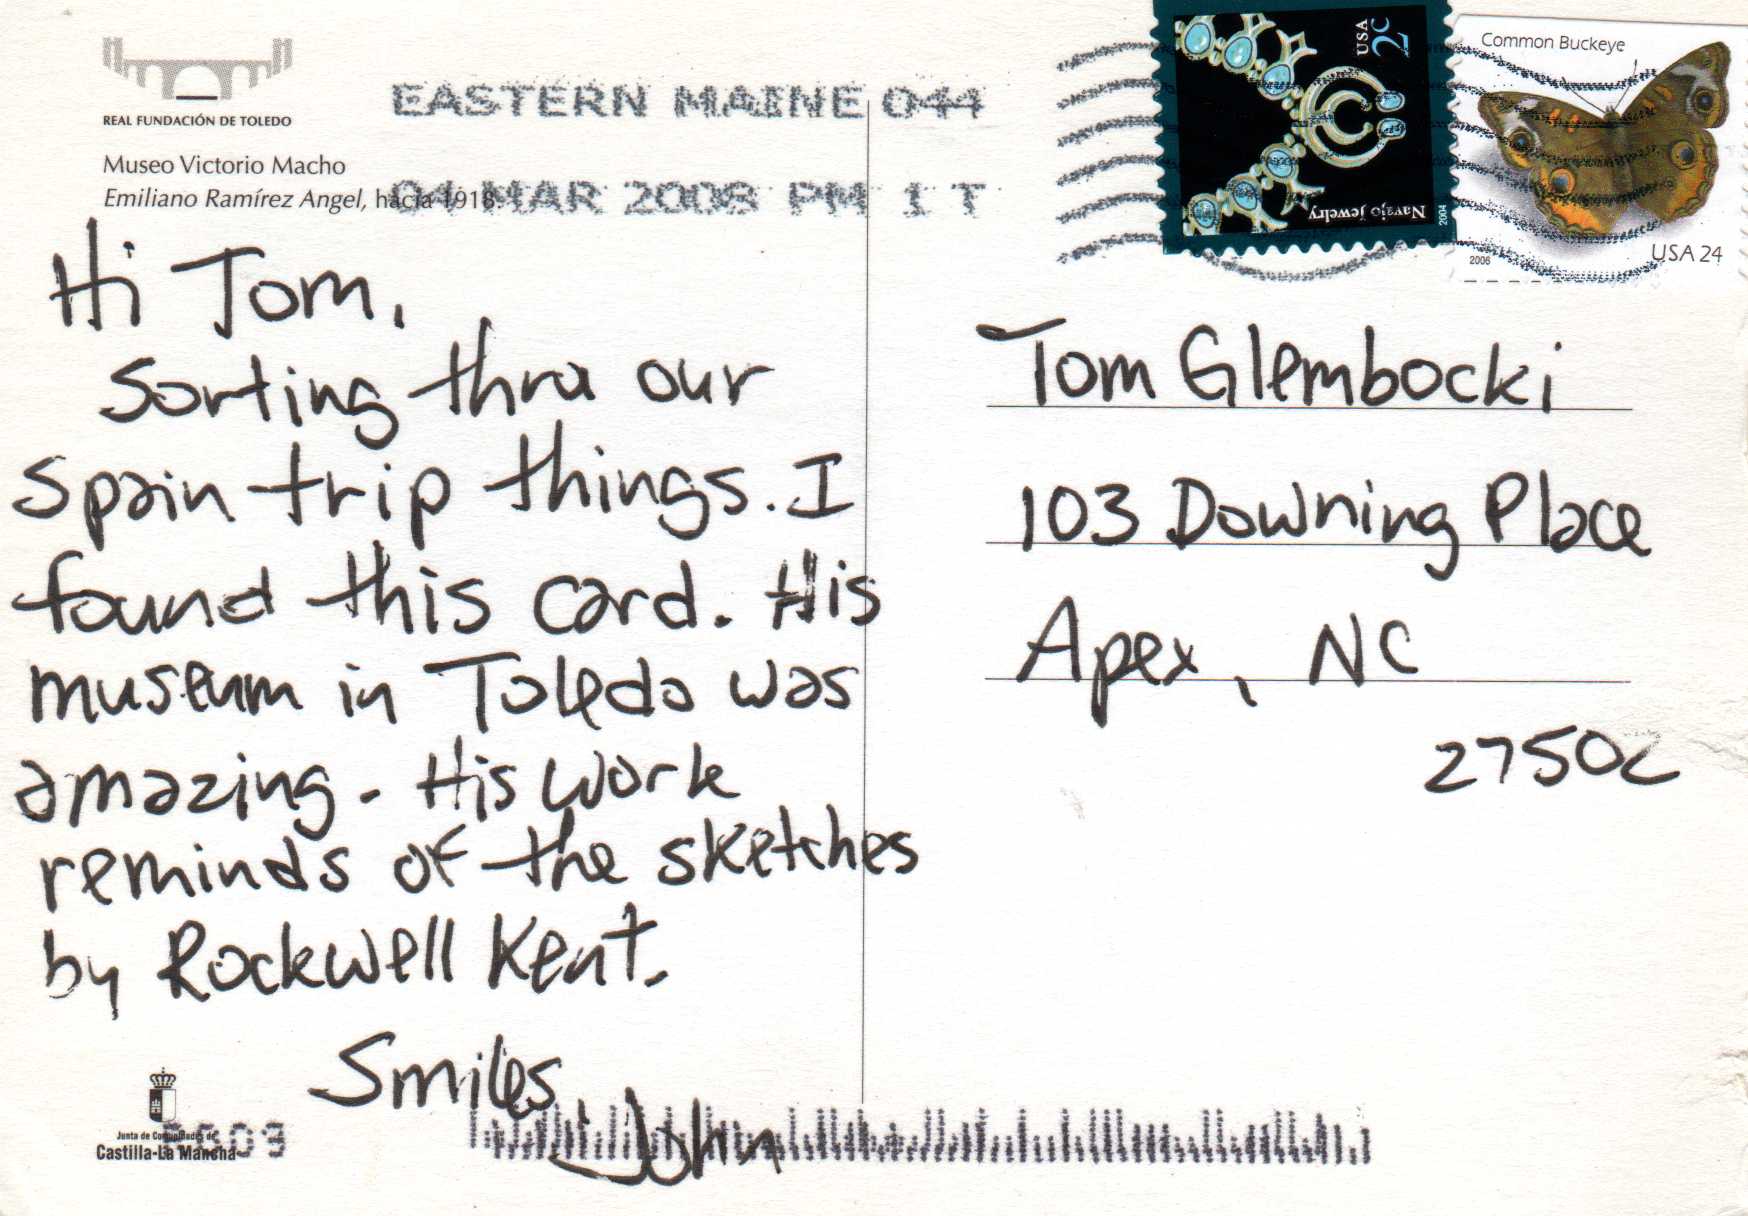 REAL FUNDACIÓN DE TOLEDO
Museo Victorio Macho
Emiliano Ramírez Angel, hacia 1918.
EASTERN MAINE 044
04 MAR 2008 PM 1 T
USA 2c
Navajo jewelry
2004
Common Buckeye
USA 24
2006
Hi Tom,
Sorting thru our
Spain trip things. I
found this card. His
museum in Toledo was
amazing. His work
reminds of the sketches
by Rockwell Kent.
Smiles,
John
Tom Glembocki
103 Downing Place
Apex, NC
2750
Junta de Comunidades de
Castilla-La Mancha